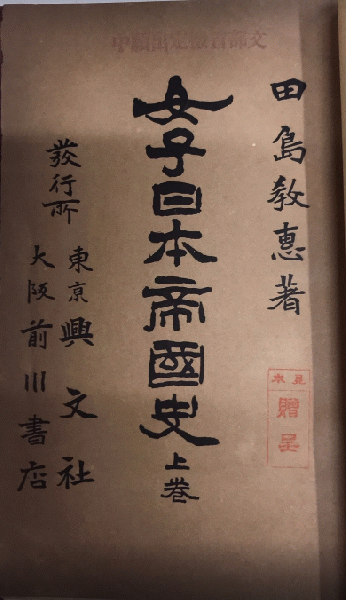 文部省検定出願中
田島教恵著
女子日本帝國史上巻
發行所
東京興文社
大阪前川書店
見本
贈呈